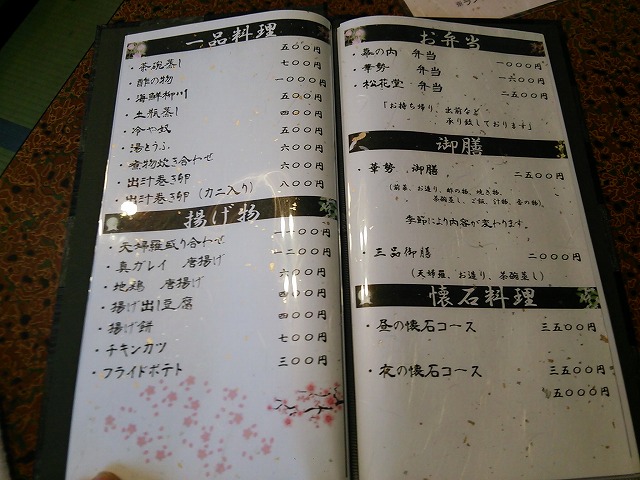 一品料理
・茶碗蒸し 五〇〇円
・酢の物 七〇〇円
・海鮮柳川 一〇〇〇円
・土瓶蒸し 五〇〇円
・冷や奴 四〇〇円
・湯とうふ 五〇〇円
・煮物炊き合わせ 六〇〇円
・出汁巻き卵 六〇〇円
・出汁巻き卵（カニ入り） 八〇〇円
揚げ物
・天婦羅盛り合わせ 一一〇〇円
・真ガレイ 唐揚げ 一二〇〇円
・地鶏 唐揚げ 六〇〇円
・揚げ出し豆腐 四〇〇円
・揚げ餅 四〇〇円
・チキンカツ 七〇〇円
・フライドポテト 三〇〇円
お弁当
・幕の内 弁当 一〇〇〇円
・華勢 弁当 一六〇〇円
・松花堂 弁当 二五〇〇円
「お持ち帰り、出前など
承り致しております」
御膳
・華勢 御膳 二五〇〇円
（前菜、お造り、酢の物、焼き物、
茶碗蒸し、ご飯、汁物、香の物）
季節により内容が変わります。
・三品御膳 二〇〇〇円
（天婦羅、お造り、茶碗蒸し）
懐石料理
・昼の懐石コース 三五〇〇円
・夜の懐石コース 三五〇〇円
五〇〇〇円